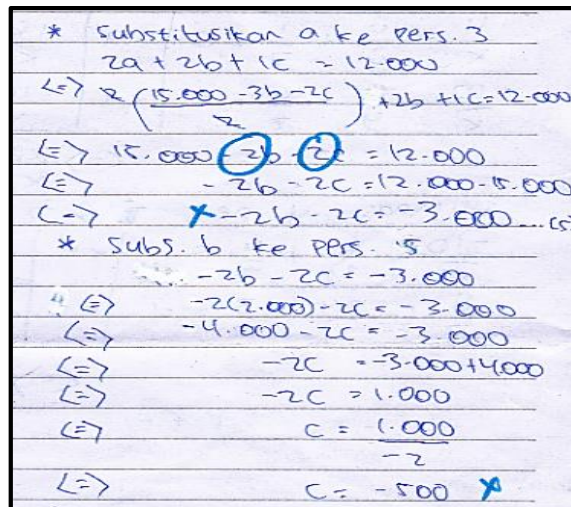 * Substitusikan a ke Pers. 3
2a + 2b + 1c = 12.000
<=> 2 (15.000 - 3b - 2c / 2) + 2b + 1c = 12.000
<=> 15.000 - 2b - 2c = 12.000
<=> - 2b - 2c = 12.000 - 15.000
<=> x - 2b - 2c = -3.000 ... (5)
* Subs. b ke Pers. 5
-2b - 2c = -3.000
<=> -2(2.000) - 2c = -3.000
<=> -4.000 - 2c = -3.000
<=> -2c = -3.000 + 4.000
<=> -2c = 1.000
<=> c = 1.000 / -2
<=> c = -500 x